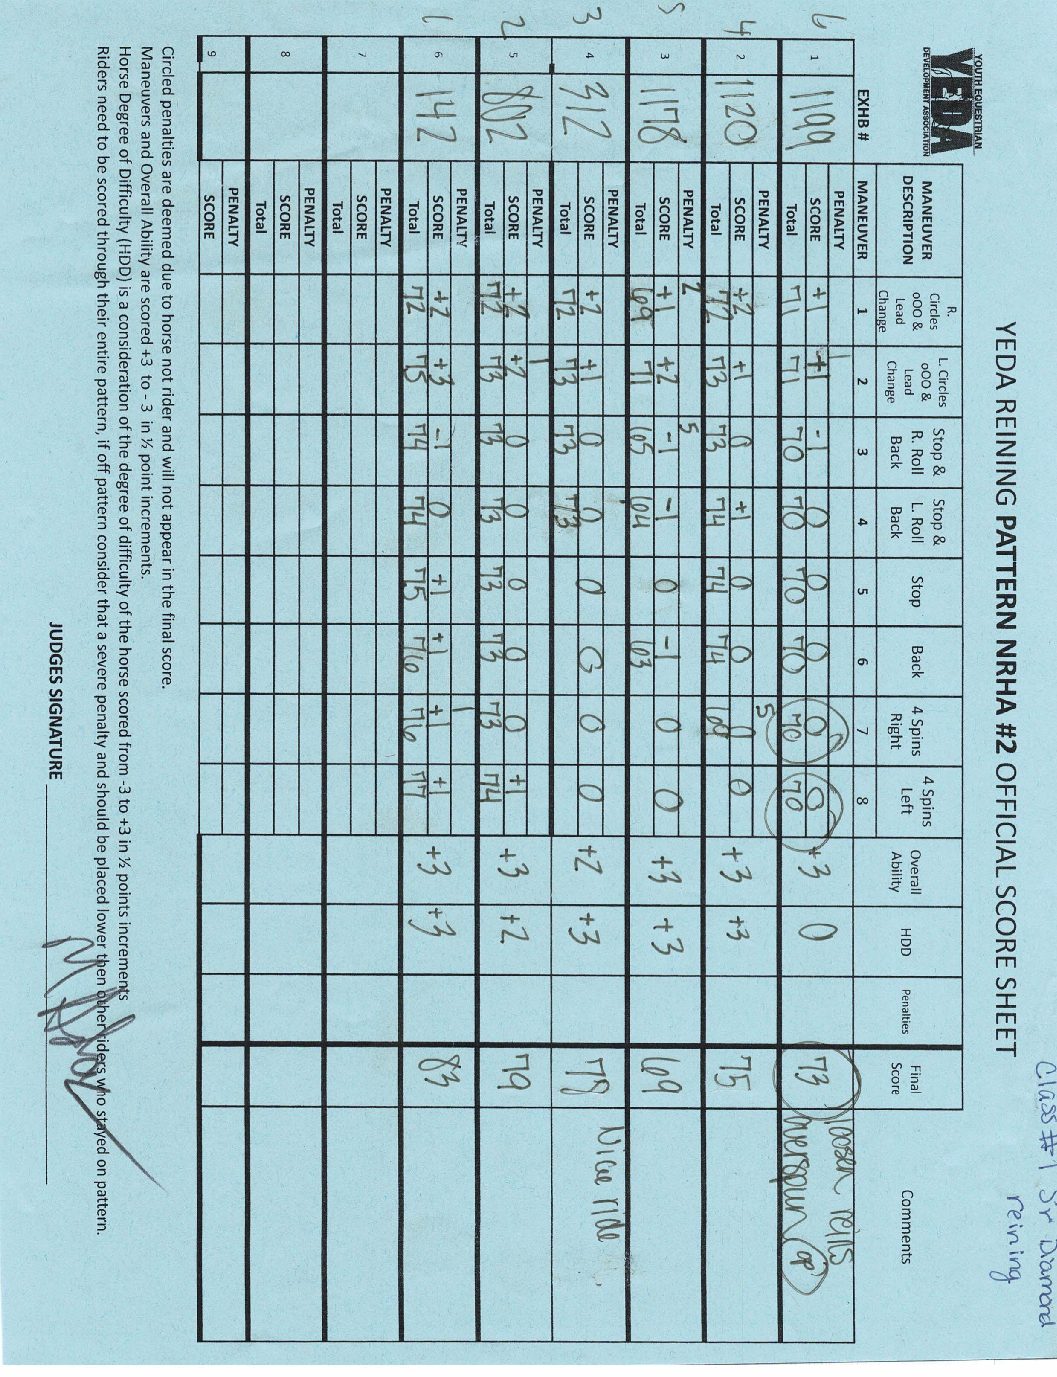 Class #1 Sr Diamond
reining
YOUTH EQUESTRIAN
YEDA
DEVELOPMENT ASSOCIATION
YEDA REINING PATTERN NRHA #2 OFFICIAL SCORE SHEET
MANEUVER DESCRIPTION R. Circles oOO & Lead Change L. Circles oOO & Lead Change Stop & R. Roll Back Stop & L. Roll Back Stop Back 4 Spins Right 4 Spins Left Overall Ability HDD Penalties Final Score Comments
EXHB # MANEUVER 1 2 3 4 5 6 7 8
6 1 1199
PENALTY 1
SCORE +1 +1 -1 0 0 0 0 0 +3 0 73 loosen reins
Total 71 71 70 70 70 70 70 70 overspun op
4 2 1120
PENALTY 5
SCORE +2 +1 0 +1 0 0 0 0 +3 +3 75
Total 72 73 73 74 74 74 69
5 3 1178
PENALTY 2 5
SCORE +1 +2 -1 -1 0 -1 0 0 +3 +3 69
Total 69 71 65 64 63
3 4 312
PENALTY
SCORE +2 +1 0 0 0 0 0 0 +2 +3 78 Nice ride
Total 72 73 73 73
2 5 802
PENALTY 1
SCORE +2 +2 0 0 0 0 0 +1 +3 +2 79
Total 72 73 73 73 73 73 73 74
1 6 142
PENALTY 1
SCORE +2 +3 -1 0 +1 +1 +1 +1 +3 +3 83
Total 72 75 74 74 75 76 76 77
7
PENALTY
SCORE
Total
8
PENALTY
SCORE
Total
9
PENALTY
SCORE
Circled penalties are deemed due to horse not rider and will not appear in the final score.
Maneuvers and Overall Ability are scored +3 to - 3 in ½ point increments.
Horse Degree of Difficulty (HDD) is a consideration of the degree of difficulty of the horse scored from -3 to +3 in ½ points increments
Riders need to be scored through their entire pattern, if off pattern consider that a severe penalty and should be placed lower then other riders who stayed on pattern.
JUDGES SIGNATURE